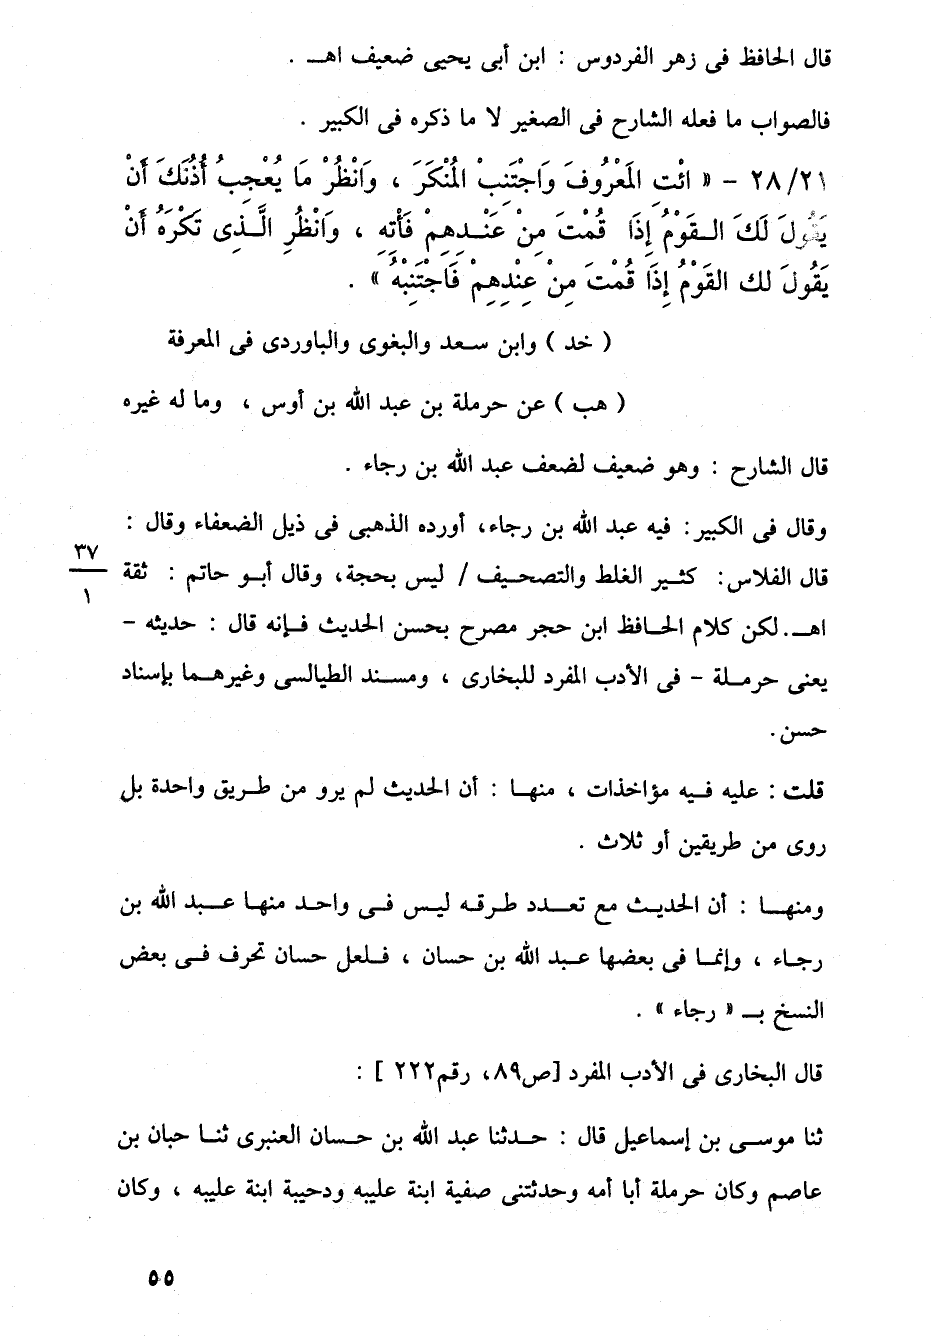 قال الحافظ فى زهر الفردوس : ابن أبى يحيى ضعيف اهـ .
فالصواب ما فعله الشارح فى الصغير لا ما ذكره فى الكبير .
٢٨/٢١ – « ائْتِ المَعْرُوفَ وَاجْتَنِبْ المُنْكَرَ ، وَانْظُرْ مَا يُعْجِبُ أُذُنَكَ أَنْ
يَقُولَ لَكَ القَوْمُ إِذَا قُمْتَ مِنْ عَنْدِهِمْ فَأْتِهِ ، وَانْظُرِ الَّذِى تَكْرَهُ أَنْ
يَقُولَ لك القَوْمُ إِذَا قُمْتَ مِنْ عِنْدِهِمْ فَاجْتَنِبْهُ » .
( خد ) وابن سعد والبغوى والباوردى فى المعرفة
( هب ) عن حرملة بن عبد الله بن أوس ، وما له غيره
قال الشارح : وهو ضعيف لضعف عبد الله بن رجاء .
وقال فى الكبير : فيه عبد الله بن رجاء، أورده الذهبى فى ذيل الضعفاء وقال :
قال الفلاس: كثير الغلط والتصحيف / ليس بحجة، وقال أبو حاتم : ثقة
٣٧
١
اهـ. لكن كلام الحافظ ابن حجر مصرح بحسن الحديث فإنه قال : حديثه –
يعنى حرملة – فى الأدب المفرد للبخارى ، ومسند الطيالسى وغيرهما بإسناد
حسن.
قلت : عليه فيه مؤاخذات ، منها : أن الحديث لم يرو من طريق واحدة بل
روى من طريقين أو ثلاث .
ومنها : أن الحديث مع تعدد طرقه ليس فى واحد منها عبد الله بن
رجاء ، وإنما فى بعضها عبد الله بن حسان ، فلعل حسان تحرف فى بعض
النسخ بـ « رجاء » .
قال البخارى فى الأدب المفرد [ص٨٩، رقم٢٢٢ ] :
ثنا موسى بن إسماعيل قال : حدثنا عبد الله بن حسان العنبرى ثنا حبان بن
عاصم وكان حرملة أبا أمه وحدثتنى صفية ابنة عليبه ودحيبة ابنة عليبه ، وكان
٥٥